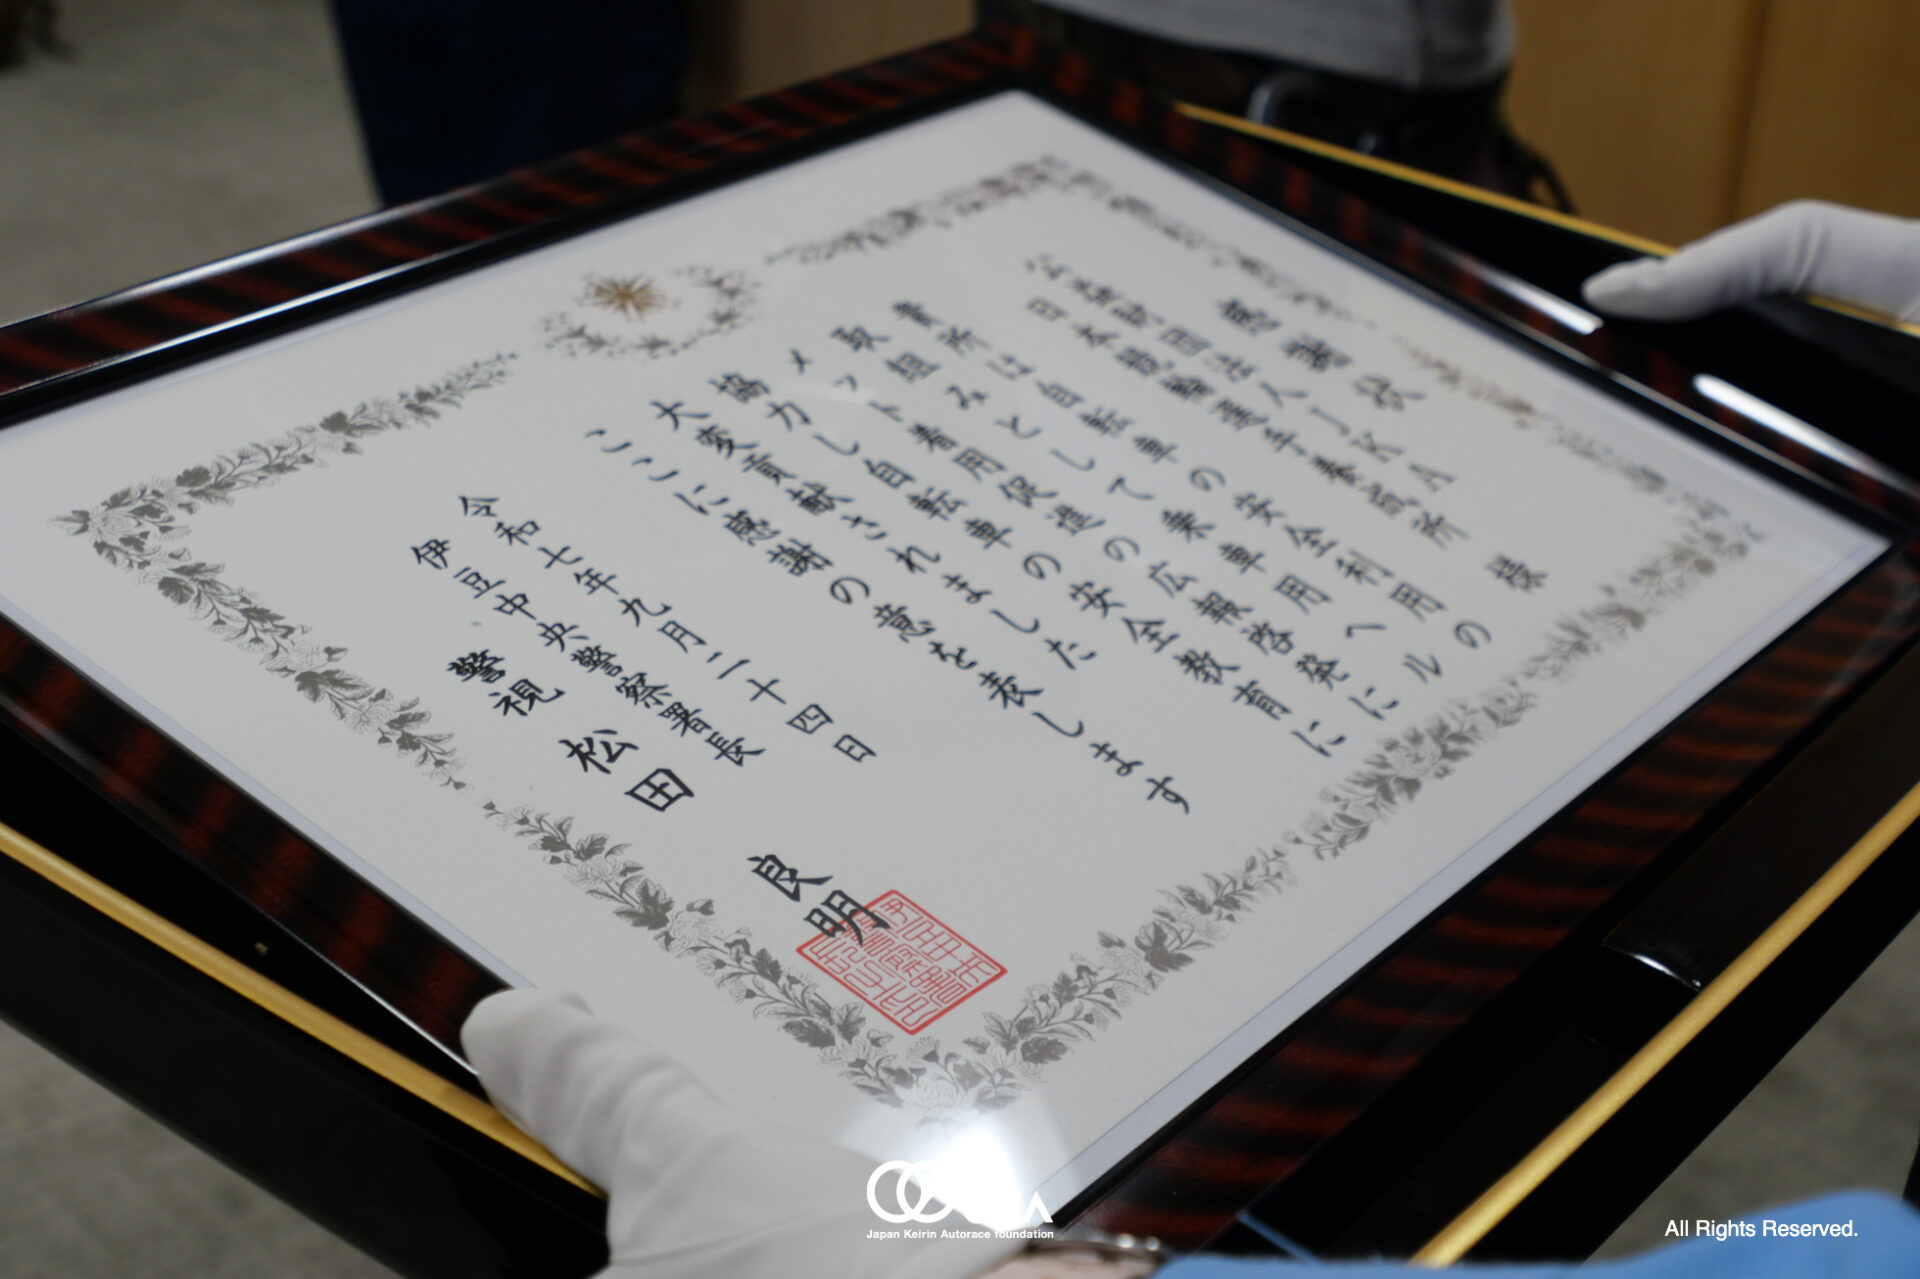 感謝状
公益財団法人JKA
日本競輪選手養成所 様
貴所は自転車の安全利用の
取組みとして乗車用ヘル
メット着用促進の広報啓発に
協力し自転車の安全教育に
大変貢献されました
ここに感謝の意を表します
令和七年九月二十四日
伊豆中央警察署長
警視 松田 良明
Japan Keirin Autorace foundation
All Rights Reserved.